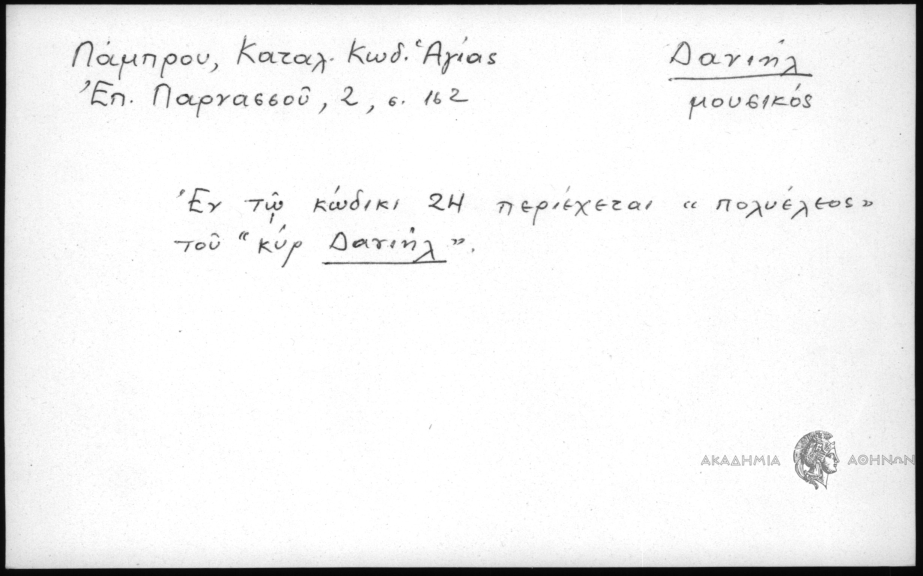 Λάμπρου, Καταλ. Κωδ. Ἁγίας
Ἐπ. Παρνασσοῦ, 2, σ. 162
Δανιήλ
μουσικός
Ἐν τῷ κώδικι 24 περιέχεται “πολυέλεος”
τοῦ “κύρ Δανιήλ”.
ΑΚΑΔΗΜΙΑ ΑΘΗΝΩΝ